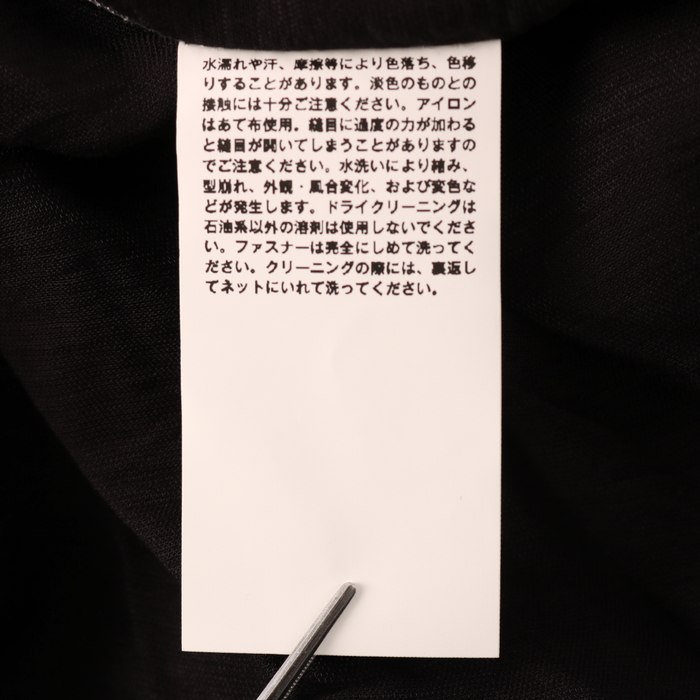 水濡れや汗、摩擦等により色落ち、色移
りすることがあります。淡色のものとの
接触には十分ご注意ください。アイロン
はあて布使用。縫目に過度の力が加わる
と縫目が開いてしまうことがありますの
でご注意ください。水洗いにより縮み、
型崩れ、外観・風合変化、および変色な
どが発生します。ドライクリーニングは
石油系以外の溶剤は使用しないでくださ
い。ファスナーは完全にしめて洗ってく
ださい。クリーニングの際には、裏返し
てネットにいれて洗ってください。